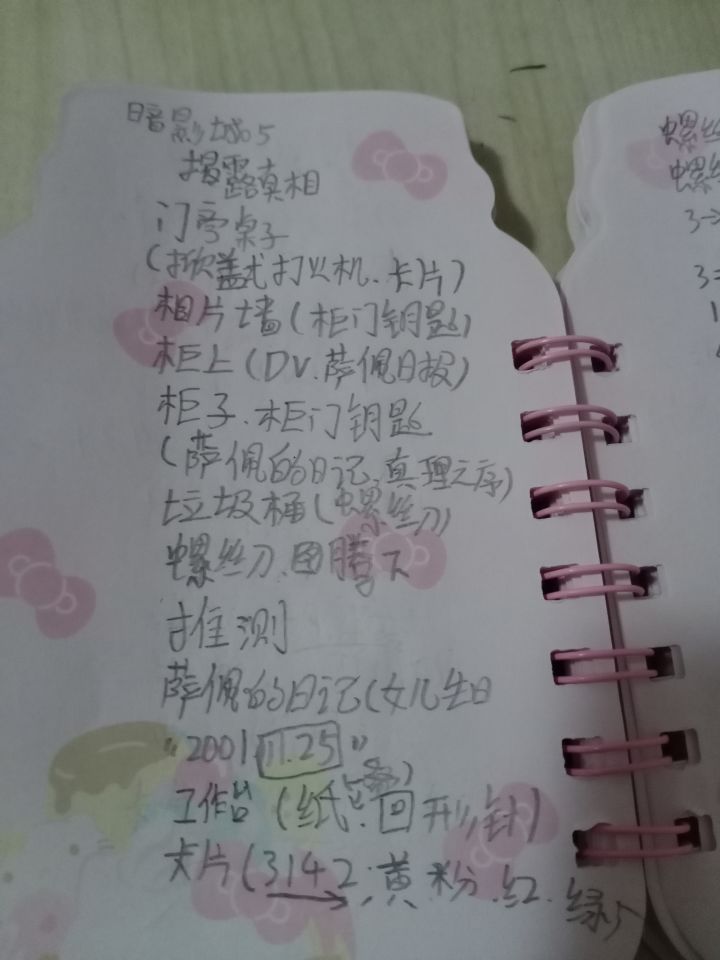 暗影城5
揭露真相
门旁桌子
(掀盖式打火机.卡片)
相片墙(柜门钥匙)
柜上(DV.萨佩日报)
柜子.柜门钥匙
(萨佩的日记.真理之序)
垃圾桶(螺丝刀)
螺丝刀.图腾下
推测
萨佩的日记(女儿生日
"2001 11.25"
工作台(纸.回形针)
卡片(3142;黄.粉.红.绿
螺丝
螺丝
3→
3=
1